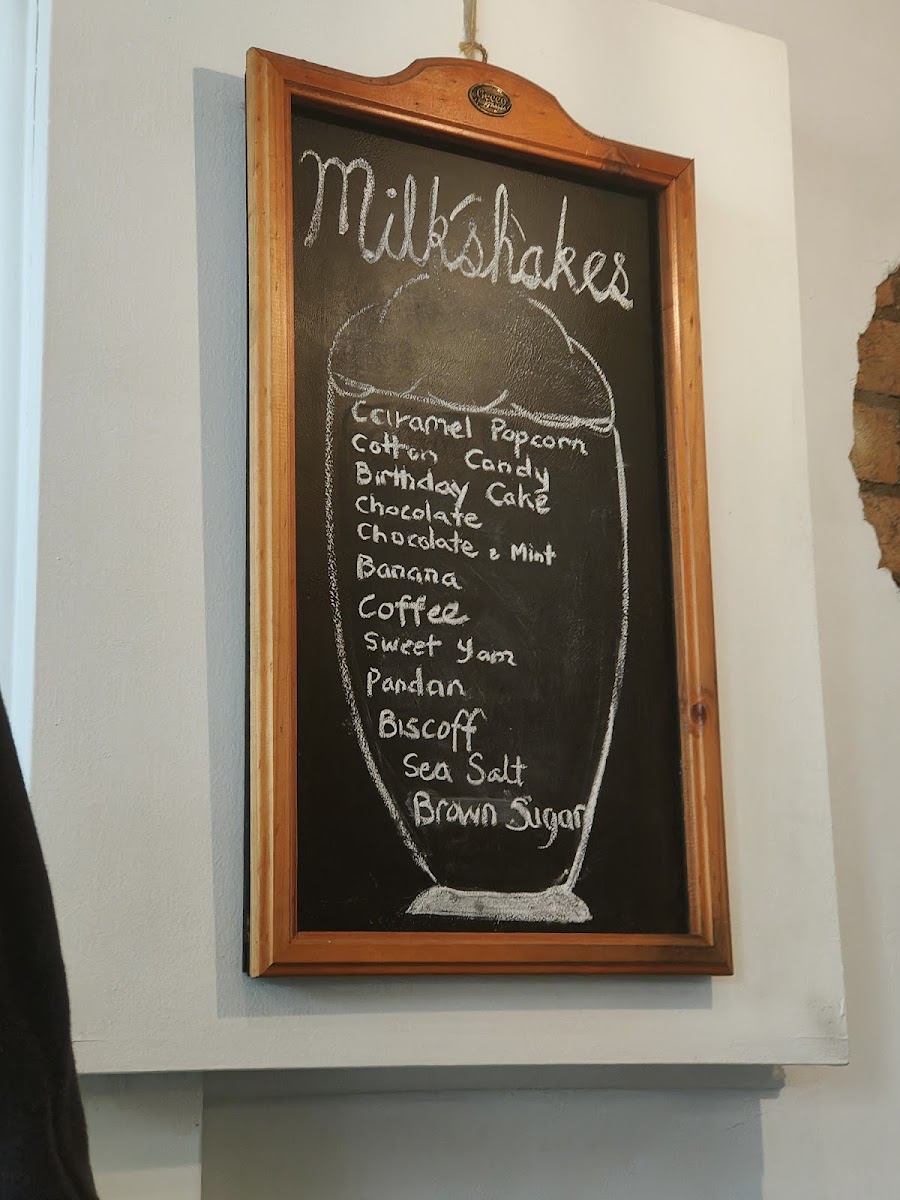 Milkshakes
Caramel Popcorn
Cotton Candy
Birthday Cake
Chocolate
Chocolate & Mint
Banana
Coffee
Sweet Yam
Pandan
Biscoff
Sea Salt
Brown Sugar